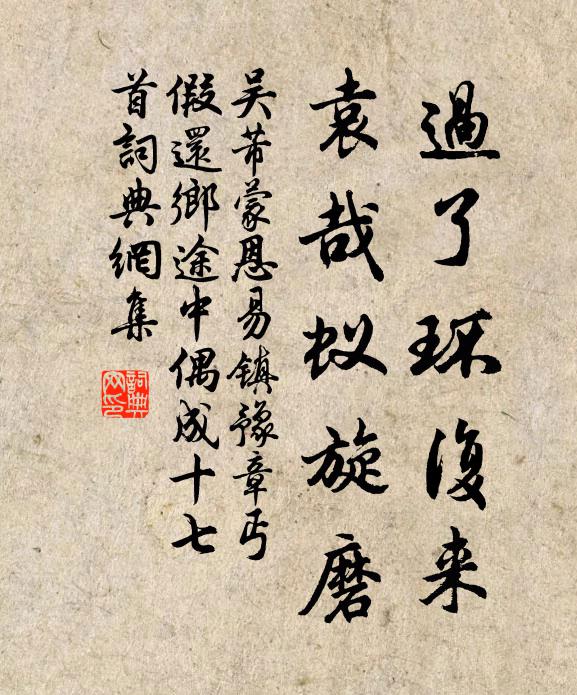 過了环復来
袁哉蚁旋磨
吴芾蒙恩易鎮豫章丐
假還鄉途中偶成十七
首詞典網集
詞典
网印